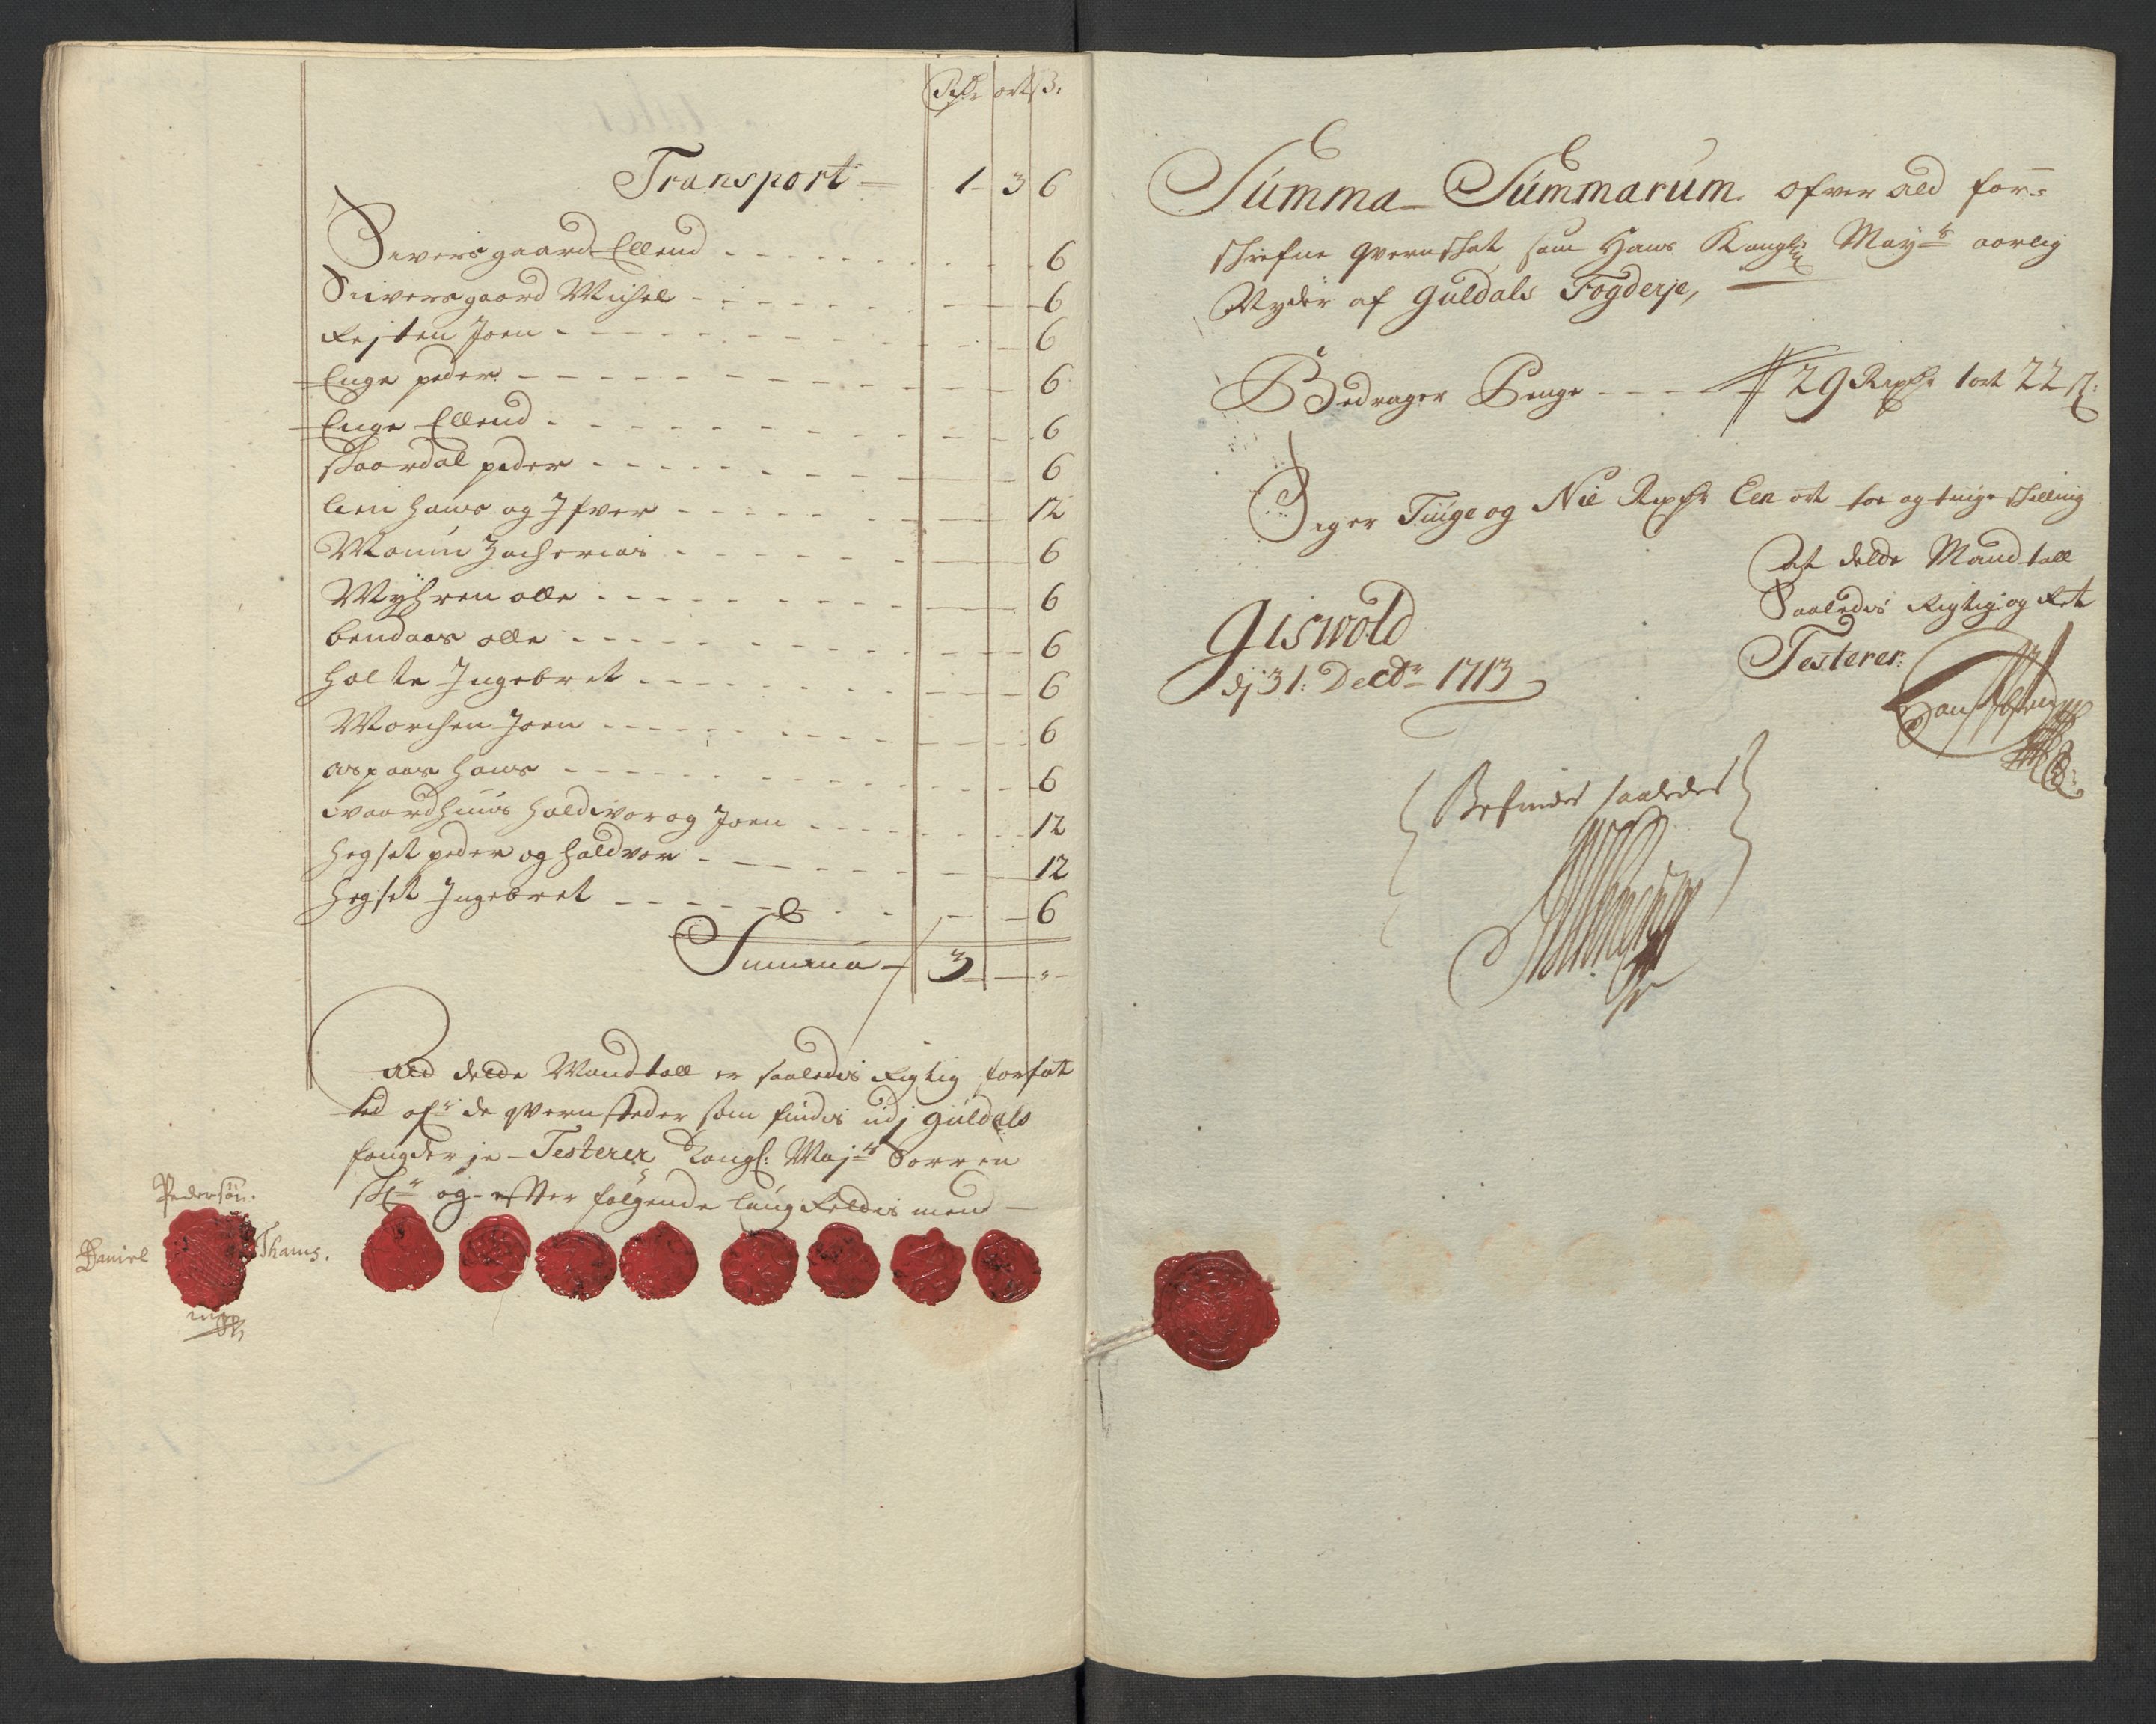 Rdr ort s:
Transport — 1 - 3 6
Siversgaard Ellend - - - 6
Siiversgaard Michel - - - 6
Rejten Joen - - - 6
Enge peder - - - 6
Enge Ellend - - - 6
skaardal peder - - - 6
lien hans og Ifver - - - 12
Zacherias - - - 6
Myhren olle - - - 6
bendaas olle - - - 6
holte Ingebret - - - 6
Morchen Joen - - - 6
aspaas hans - - - 6
waardhuus haldvor og Joen - - - 12
hegset peder og haldvor - - - 12
hegset Ingebret - - - 6
Summa — 3 — „ —
Ald dette Mandtall er saaledis Rigtig forfat
ted ofr de qvernsteder som findis udj guldals
fougderje - Testerer Kongl: Majts Sorren
skr og efter følgende laug Rettis mend —
Pedersøn.
Daniel Thams.
Summa Summarum ofver ald for=
skrefne qvernskat som Hans Kongl: Mayts aarlig
Nyder af Guldals Fogderje,
Bedrager Penge - - - 29 Rixdr 1 ort 22 s:
Siger Tiuge og Nie Rixdr Een ort toe og tiuge skilling
At dette Mandtall
Saaledis Rigtig og Ret
Testerer:
Giswold
dj 31: Decbr 1713
Befindes saaledes